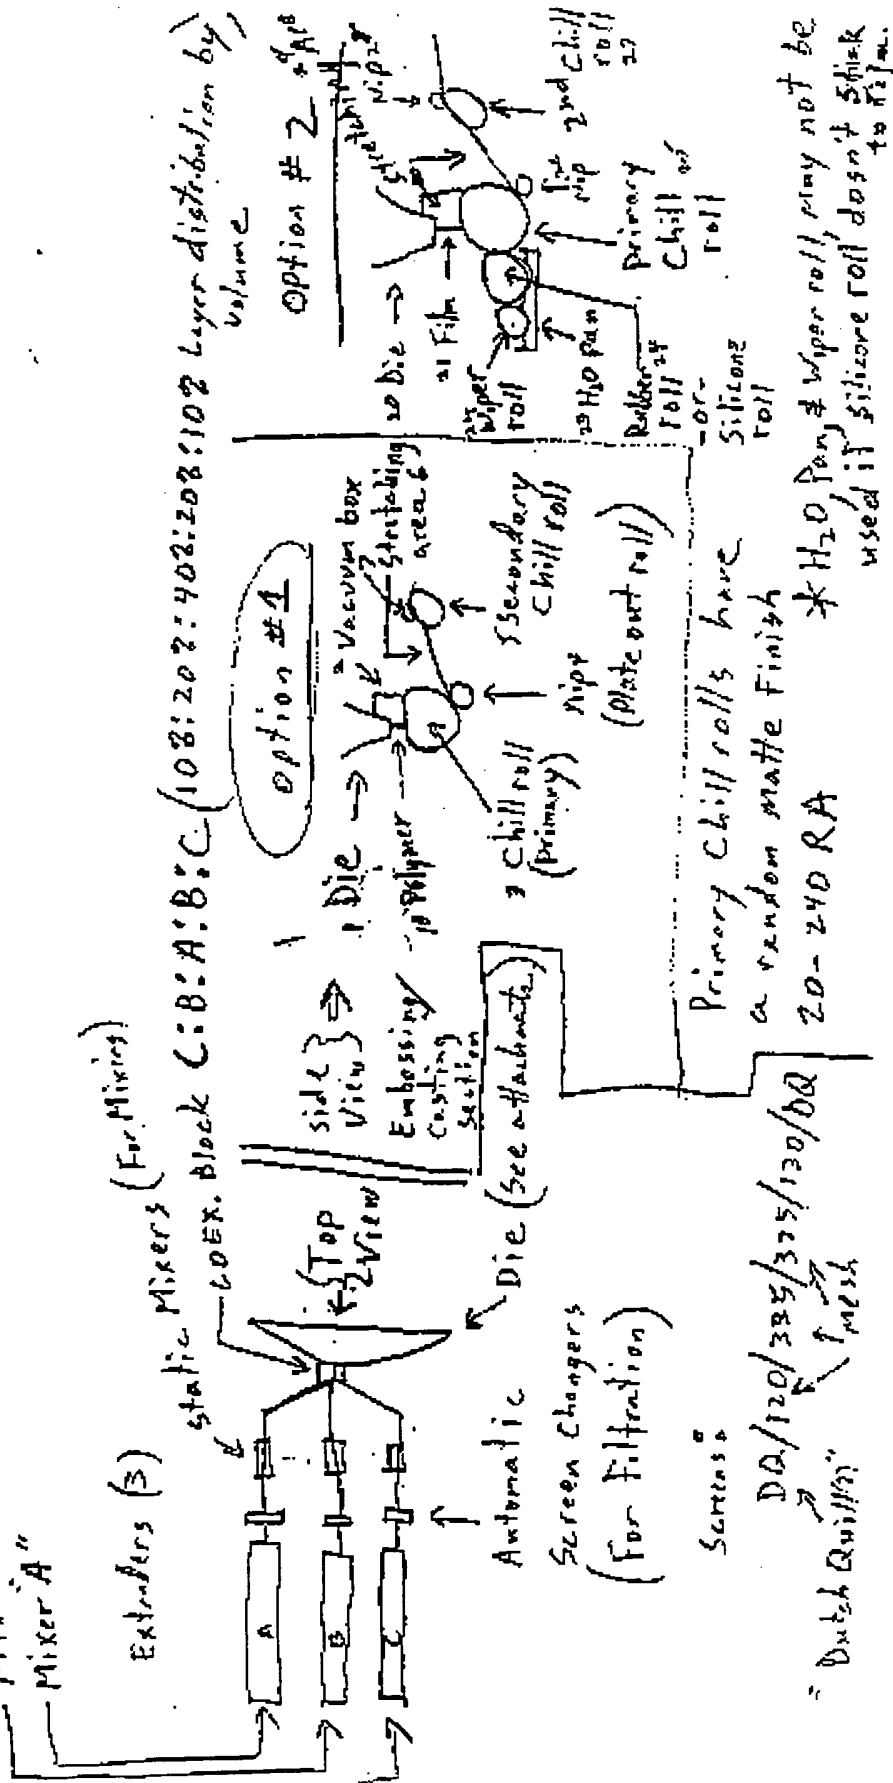 Mixer "A"
Extruders (3)
A
B
C
Static Mixers (For Mixing)
COEX. Block C:B:A:B:C (10%:20%:40%:20%:10% Layer distribution by
volume
{Top
View
Die (See attachments)
Automatic
Screen Changers
(For Filtration)
Screens:
DQ/120/325/325/120/DQ
Mesh
"Dutch Quill"
Side }
View }
Embossing/
Casting
Section
Option #1
1 Die
Vacuum box
Polymer
area 6
3 Chill roll
(Primary)
Nip 4
(Plate out roll)
5 Secondary
Chill roll
Primary Chill rolls have
a random matte Finish
20-240 RA
Option # 2
20 Die
21 Film
Wiper
roll
23 H2O Pan
Rubber 24
roll
-or-
Silicone
roll
Primary
Chill
roll
Nip
2nd Chill
roll
27
* H2O Pan & Wiper roll may not be
used if silicone roll doesn't stick
to film.